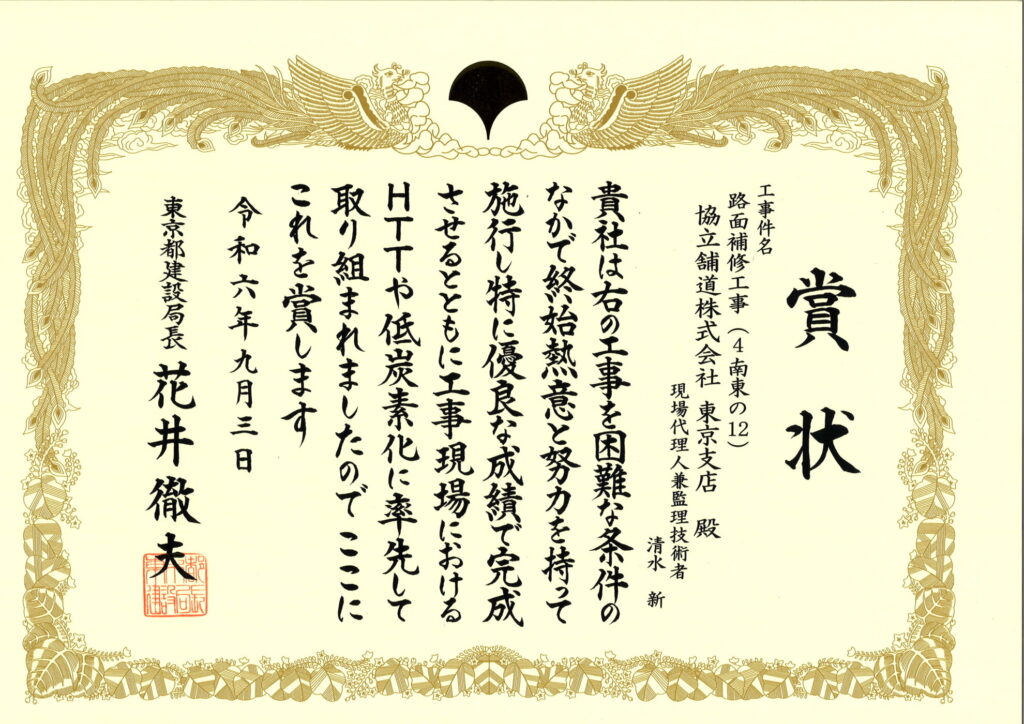 賞状
工事件名
路面補修工事（４南東の12）
協立舗道株式会社 東京支店 殿
現場代理人兼監理技術者
清水 新
貴社は右の工事を困難な条件の
なかで終始熱意と努力を持って
施行し特に優良な成績で完成
させるとともに工事現場における
ＨＴＴや低炭素化に率先して
取り組まれましたので ここに
これを賞します
令和六年九月三日
東京都建設局長 花井徹夫